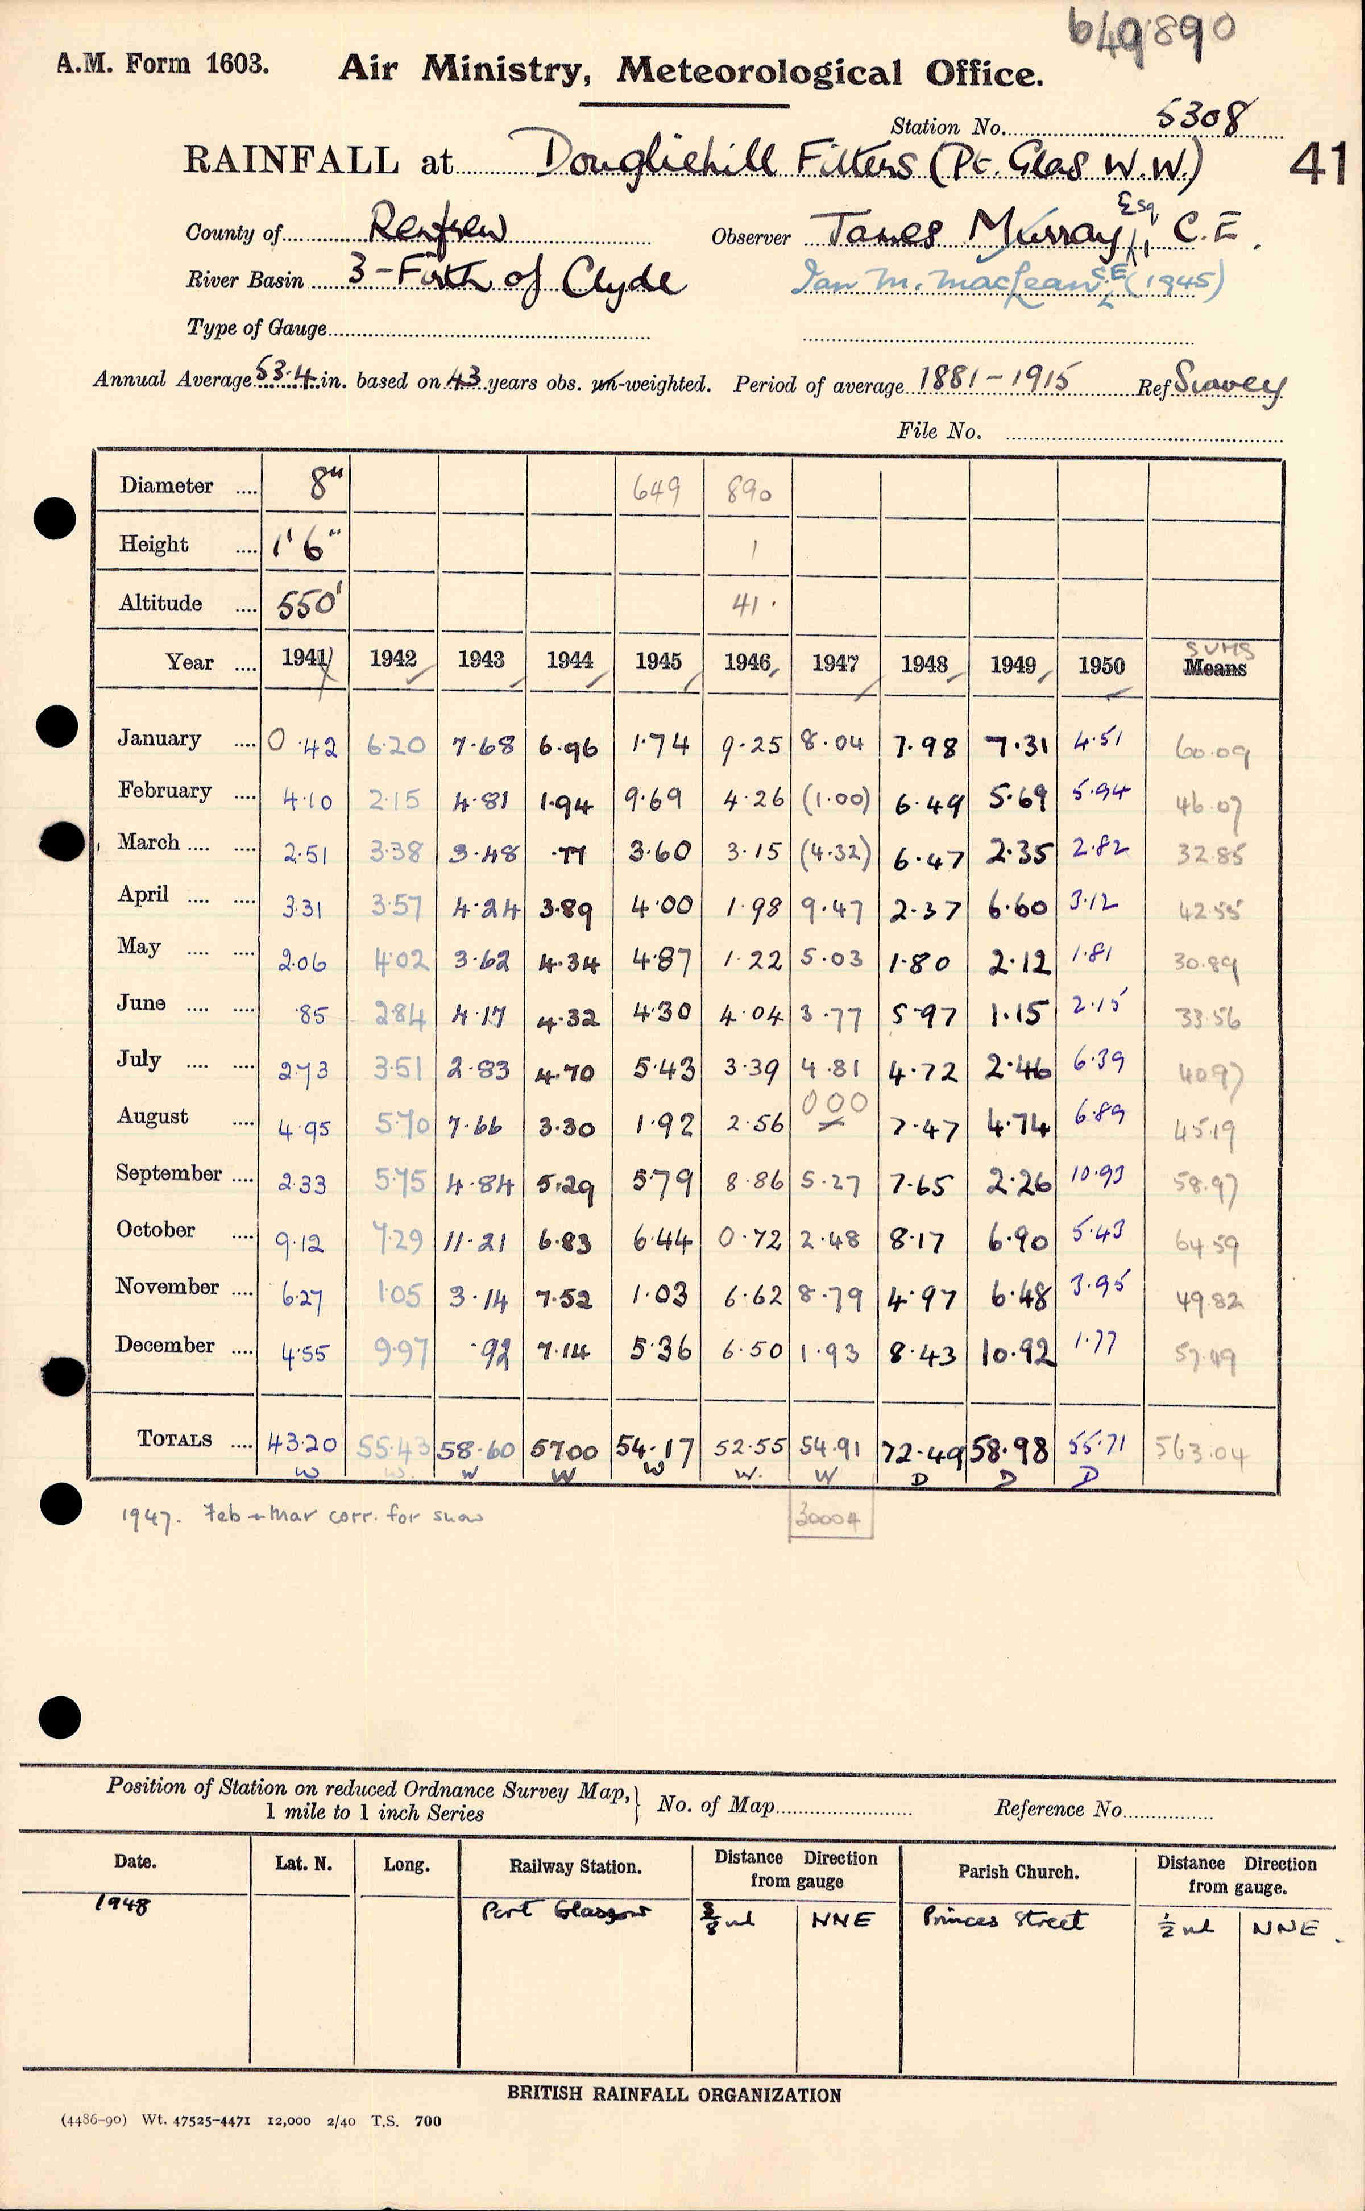 649890
A.M. Form 1603. Air Ministry, Meteorological Office.
Station No. 5308
RAINFALL at Dougliehill Filters (Pt. Glas W.W.) 41
County of Renfrew Observer James Murray Esq, C.E.
River Basin 3-Firth of Clyde Ian M. MacLean (1945)
Type of Gauge
Annual Average 53.4 in. based on 43 years obs. un-weighted. Period of average 1881-1915 Ref Survey
File No.
Diameter .... 8" 649 890
Height .... 1'6" 1
Altitude .... 550' 41.
Year .... 1941 1942 1943 1944 1945 1946 1947 1948 1949 1950 SUMS Means
January .... 0.42 6.20 7.68 6.96 1.74 9.25 8.04 7.98 7.31 4.51 60.09
February .... 4.10 2.15 4.81 1.94 9.69 4.26 (1.00) 6.49 5.69 5.94 46.07
March .... .... 2.51 3.38 3.48 .77 3.60 3.15 (4.32) 6.47 2.35 2.82 32.85
April .... .... 3.31 3.57 4.24 3.89 4.00 1.98 9.47 2.37 6.60 3.12 42.55
May .... .... 2.06 4.02 3.62 4.34 4.87 1.22 5.03 1.80 2.12 1.81 30.89
June .... .... .85 2.84 4.17 4.32 4.30 4.04 3.77 5.97 1.15 2.15 33.56
July .... .... 2.73 3.51 2.83 4.70 5.43 3.39 4.81 4.72 2.46 6.39 40.97
August .... 4.95 5.70 7.66 3.30 1.92 2.56 0.00 7.47 4.74 6.89 45.19
September .... 2.33 5.75 4.84 5.29 5.79 8.86 5.27 7.65 2.26 10.93 58.97
October .... 9.12 7.29 11.21 6.83 6.44 0.72 2.48 8.17 6.90 5.43 64.59
November .... 6.27 1.05 3.14 7.52 1.03 6.62 8.79 4.97 6.48 3.95 49.82
December .... 4.55 9.97 .92 7.14 5.36 6.50 1.93 8.43 10.92 1.77 57.49
TOTALS .... 43.20 55.43 58.60 57.00 54.17 52.55 54.91 72.49 58.98 55.71 563.04
W W. W W W W. W D D D
1947. Feb + Mar corr. for snow 30004
Position of Station on reduced Ordnance Survey Map, 1 mile to 1 inch Series } No. of Map Reference No.
Date. Lat. N. Long. Railway Station. Distance Direction from gauge Parish Church. Distance Direction from gauge.
1948 Port Glasgow 3/8 ml NNE Princes Street 1/2 ml NNE.
BRITISH RAINFALL ORGANIZATION
(4486-90) Wt. 47525-4471 12,000 2/40 T.S. 700